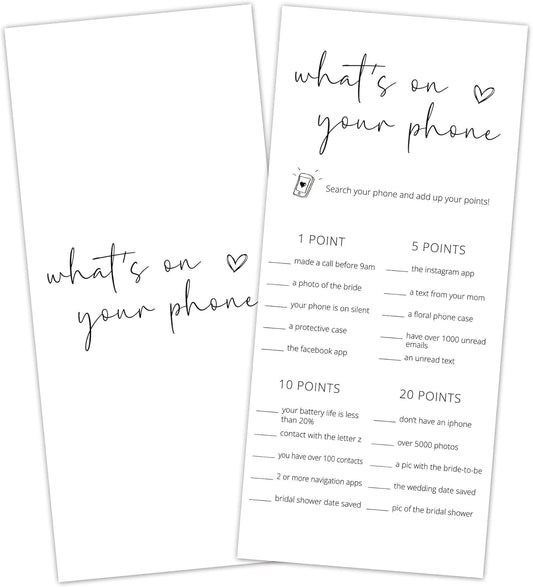 what's on
your phone
what's on
your phone
Search your phone and add up your points!
1 POINT
____ made a call before 9am
____ a photo of the bride
____ your phone is on silent
____ a protective case
____ the facebook app
5 POINTS
____ the instagram app
____ a text from your mom
____ a floral phone case
____ have over 1000 unread
emails
____ an unread text
10 POINTS
____ your battery life is less
than 20%
____ contact with the letter z
____ you have over 100 contacts
____ 2 or more navigation apps
____ bridal shower date saved
20 POINTS
____ don't have an iphone
____ over 5000 photos
____ a pic with the bride-to-be
____ the wedding date saved
____ pic of the bridal shower